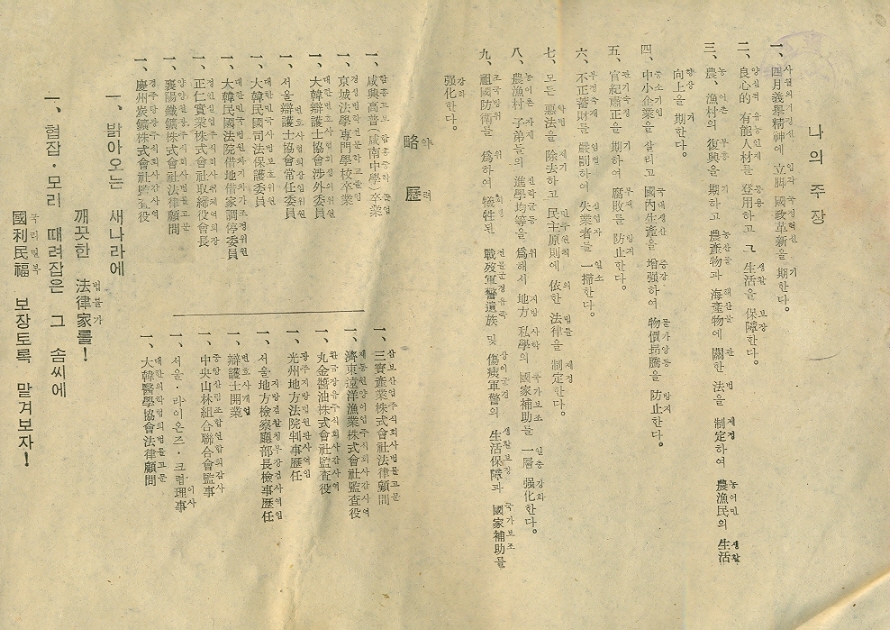 나의 주장
一、四月義擧精神에 立脚 國政革新을 期한다.
二、良心的 有能人材를 登用하고 그 生活을 保障한다.
三、農、漁村의 復興을 期하고 農產物과 海產物에 關한 法을 制定하여 農漁民의 生活
向上을 期한다.
四、中小企業을 살리고 國內生產을 增强하여 物價昻騰을 防止한다.
五、官紀肅正을 期하여 腐敗를 防止한다.
六、不正蓄財를 嚴罰하여 失業者를 一掃한다.
七、모든 惡法을 除去하고 民主原則에 依한 法律을 制定한다.
八、農漁村 子弟들의 進學均等을 爲해서 地方 私學의 國家補助를 一層 强化한다.
九、祖國防衛를 爲하여 犧牲된 戰歿軍警遺族 및 傷痍軍警의 生活保障과 國家補助를
强化한다.
略歷
一、咸興高普(咸南中學)卒業
一、京城法學專門學校卒業
一、大韓辯護士協會涉外委員
一、서울辯護士協會常任委員
一、大韓民國司法保護委員
一、大韓民國法院借地借家調停委員
一、正仁實業株式會社取締役會長
一、襄陽鐵鑛株式會社法律顧問
一、慶州炭鑛株式會社監査役
一、三寳產業株式會社法律顧問
一、濟東遠洋漁業株式會社監査役
一、丸金醬油株式會社監査役
一、光州地方法院判事歷任
一、서울地方檢察廳部長檢事歷任
一、辯護士開業
一、中央山林組合聯合會監事
一、서울・라이온즈・크럽理事
一、大韓醫學協會法律顧問
一、밝아오는 새나라에
깨끗한 法律家를!
一、협잡・모리 때려잡은 그 솜씨에
國利民福 보장토록 맡겨보자!